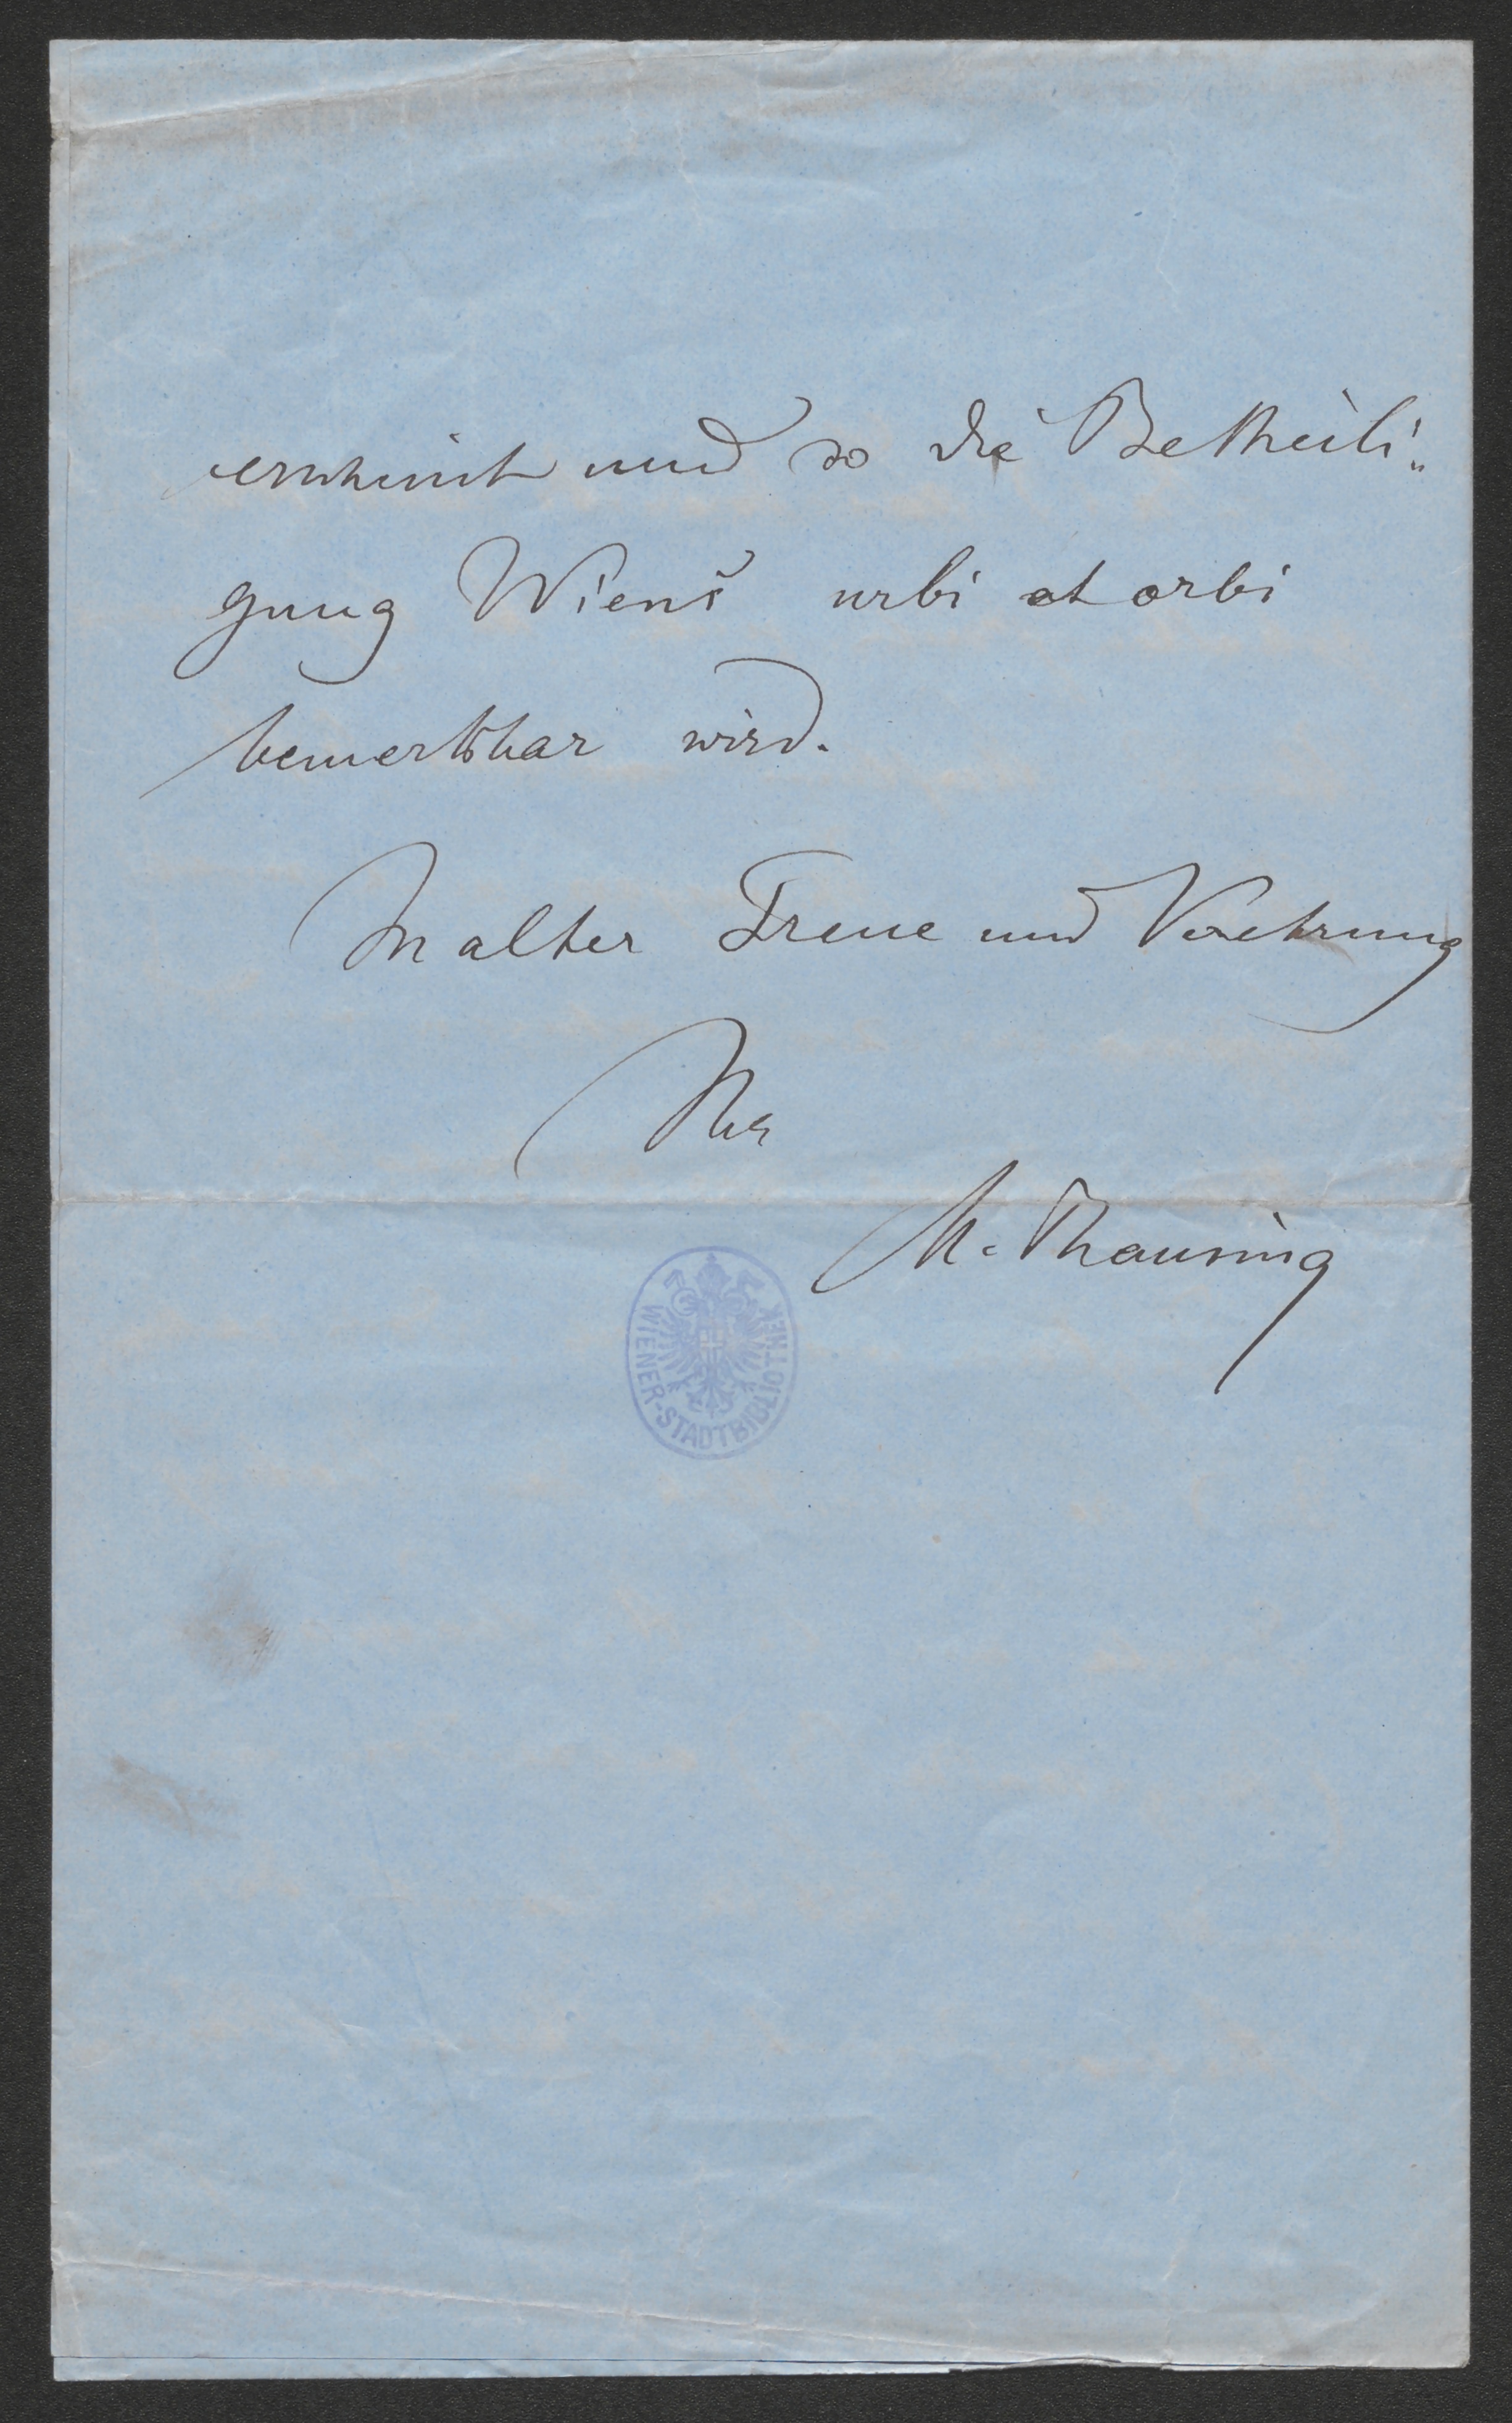 erscheint und so die Betheili„
gung Wiens urbi et orbi
bemerkbar wird.
In alter Treue und Verehrung
Ihr
M. Thausing
WIENER-STADTBIBLIOTHEK